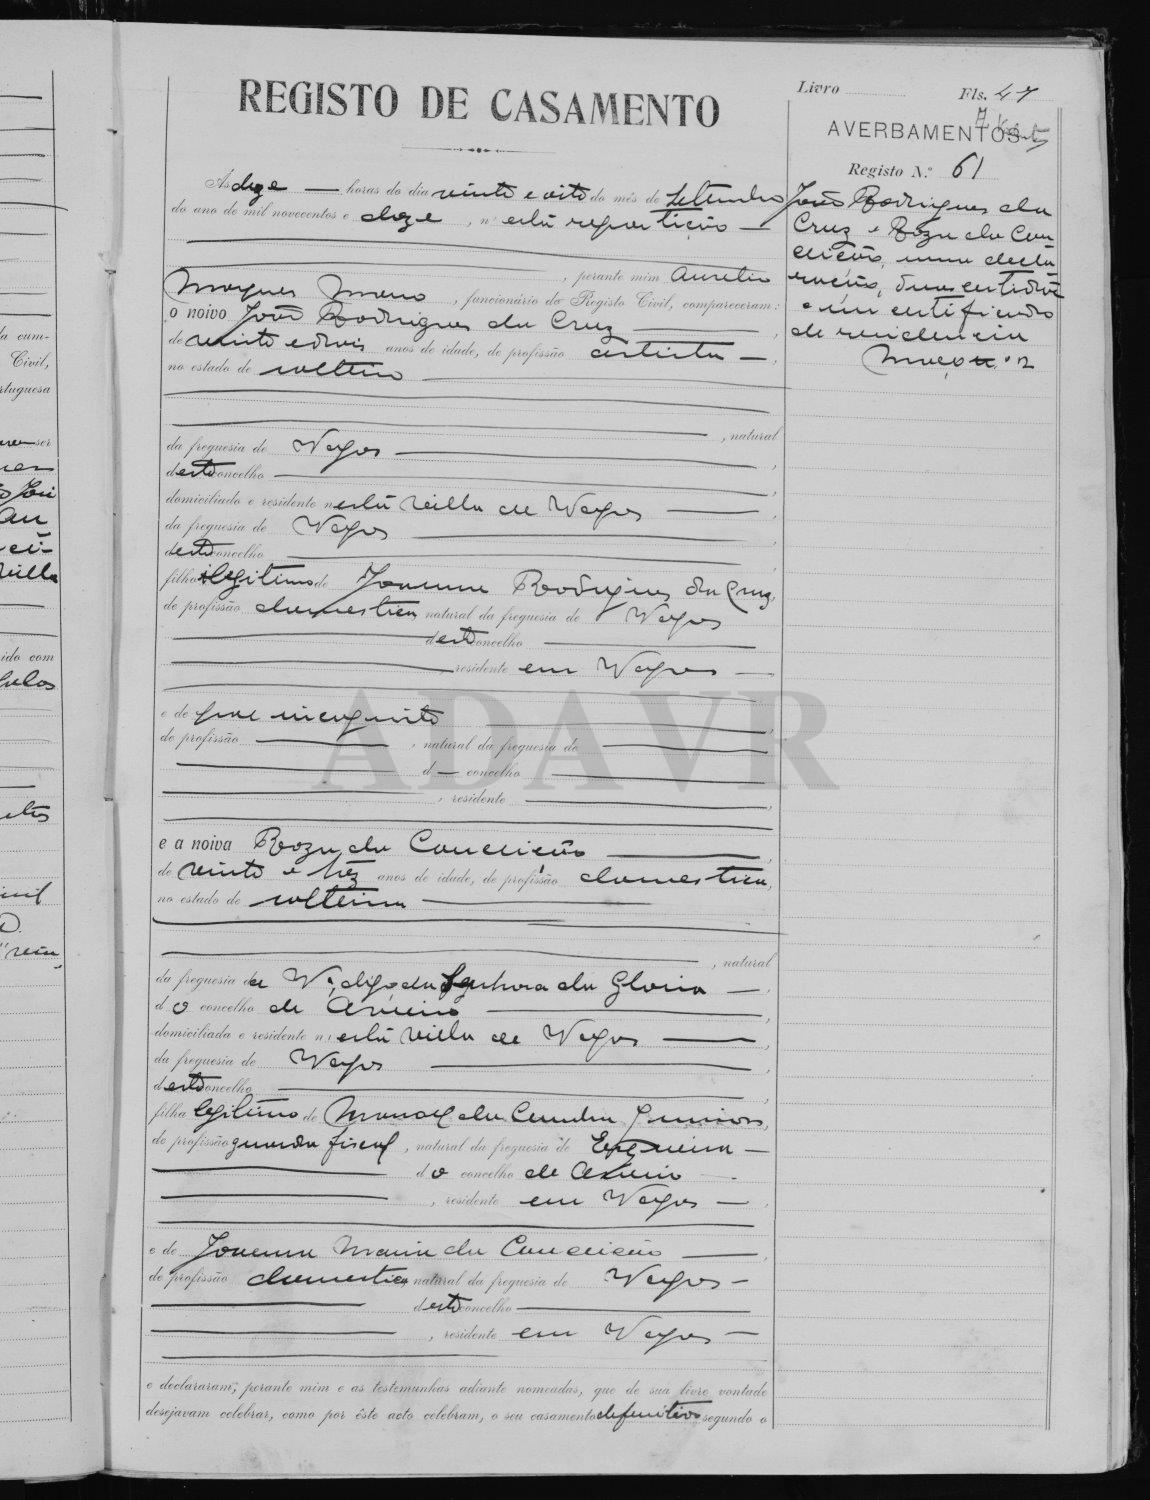 a cum-
Civil,
rtuguesa
ser
ido com
REGISTO DE CASAMENTO
Livro Fls. 47
AVERBAMENTOS
Registo N.º 61
João Rodrigues da
Cruz e Roza da Con
ceição, uma decla
ração, duas certidões
e um certificado
de residencia
Março n.º 2
As doze — horas do dia vinte e oito do mês de Setembro
do ano de mil novecentos e doze, n'esta repartição —
, perante mim Aurelio
Marques Mano, funcionário do Registo Civil, compareceram:
o noivo João Rodrigues da Cruz
de vinte e dois anos de idade, de profissão artista —,
no estado de solteiro
, natural
da freguesia de Vagos —,
deste concelho —,
domiciliado e residente nesta villa de Vagos —,
da freguesia de Vagos —,
deste concelho —,
filho ilegitimo de Joanna Rodrigues da Cruz,
de profissão domestica natural da freguesia de Vagos
deste concelho
residente em Vagos —
e de pae incognito
de profissão —, natural da freguesia de —
d — concelho
, residente —,
e a noiva Roza da Conceição —,
de vinte e trez anos de idade, de profissão domestica,
no estado de solteira —
, natural
da freguesia de digo da Senhora da Gloria —,
do concelho de Aveiro —,
domiciliada e residente nesta villa de Vagos —,
da freguesia de Vagos —,
deste concelho —,
filha legitima de Manoel da Cunha Junior,
de profissão guarda fiscal, natural da freguesia de Esgueira —
do concelho de Aveiro
, residente em Vagos —
e de Joanna Maria da Conceição —,
de profissão domestica, natural da freguesia de Vagos —
deste concelho —
, residente em Vagos —
e declararam, perante mim e as testemunhas adiante nomeadas, que de sua livre vontade
desejavam celebrar, como por êste acto celebram, o seu casamento definitivo segundo o
ADAVR